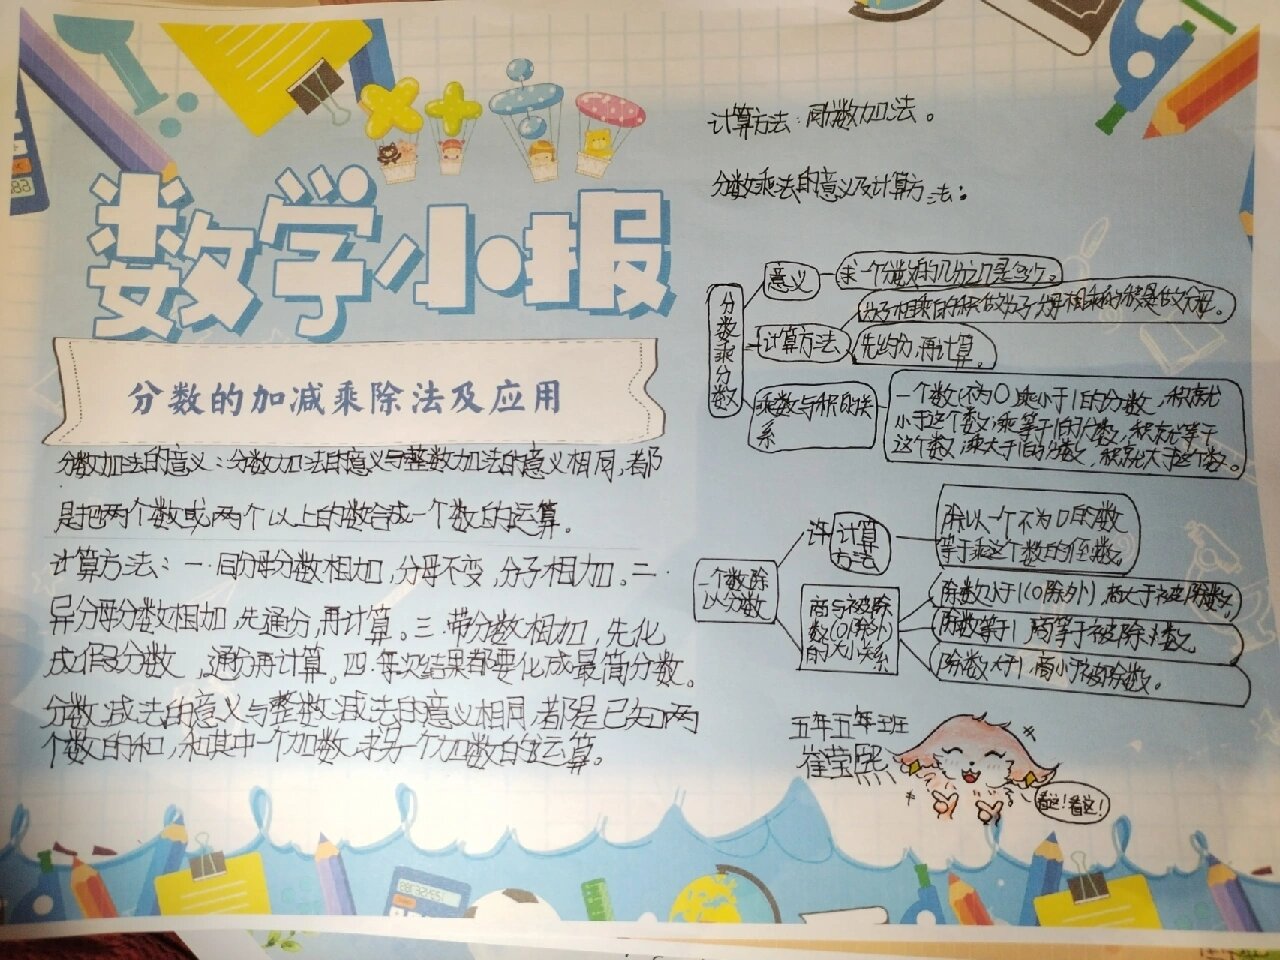 数学小报
分数的加减乘除法及应用
分数加法的意义：分数加法的意义与整数加法的意义相同，都
是把两个数或两个以上的数合成一个数的运算。
计算方法：一.同分母分数相加，分母不变，分子相加。二.
异分母分数相加，先通分，再计算。三.带分数相加，先化
成假分数，通分再计算。四.每次结果都要化成最简分数。
分数减法的意义与整数减法的意义相同，都是已知两
个数的和，和其中一个加数，求另一个加数的运算。
计算方法：同分数加法。
分数乘法的意义及计算方法：
分数乘分数
意义
求一个分数的几分之几是多少。
计算方法
分子相乘的积做分子，分母相乘的积是做分母。
先约分，再计算。
乘数与积的关
系
一个数（不为0）乘小于1的分数，积就
小于这个数；乘等于1的分数，积就等于
这个数，乘大于1的分数，积就大于这个数。
一个数除
以分数
计算
方法
除以一个不为0的数
等于乘这个数的倒数。
商与被除
数（0除外）
的大小关系
除数小于1（0除外），商大于被除数，
除数等于1，商等于被除数，
除数大于1，商小于被除数。
五年五年班
崔莹熙
看这！看这！